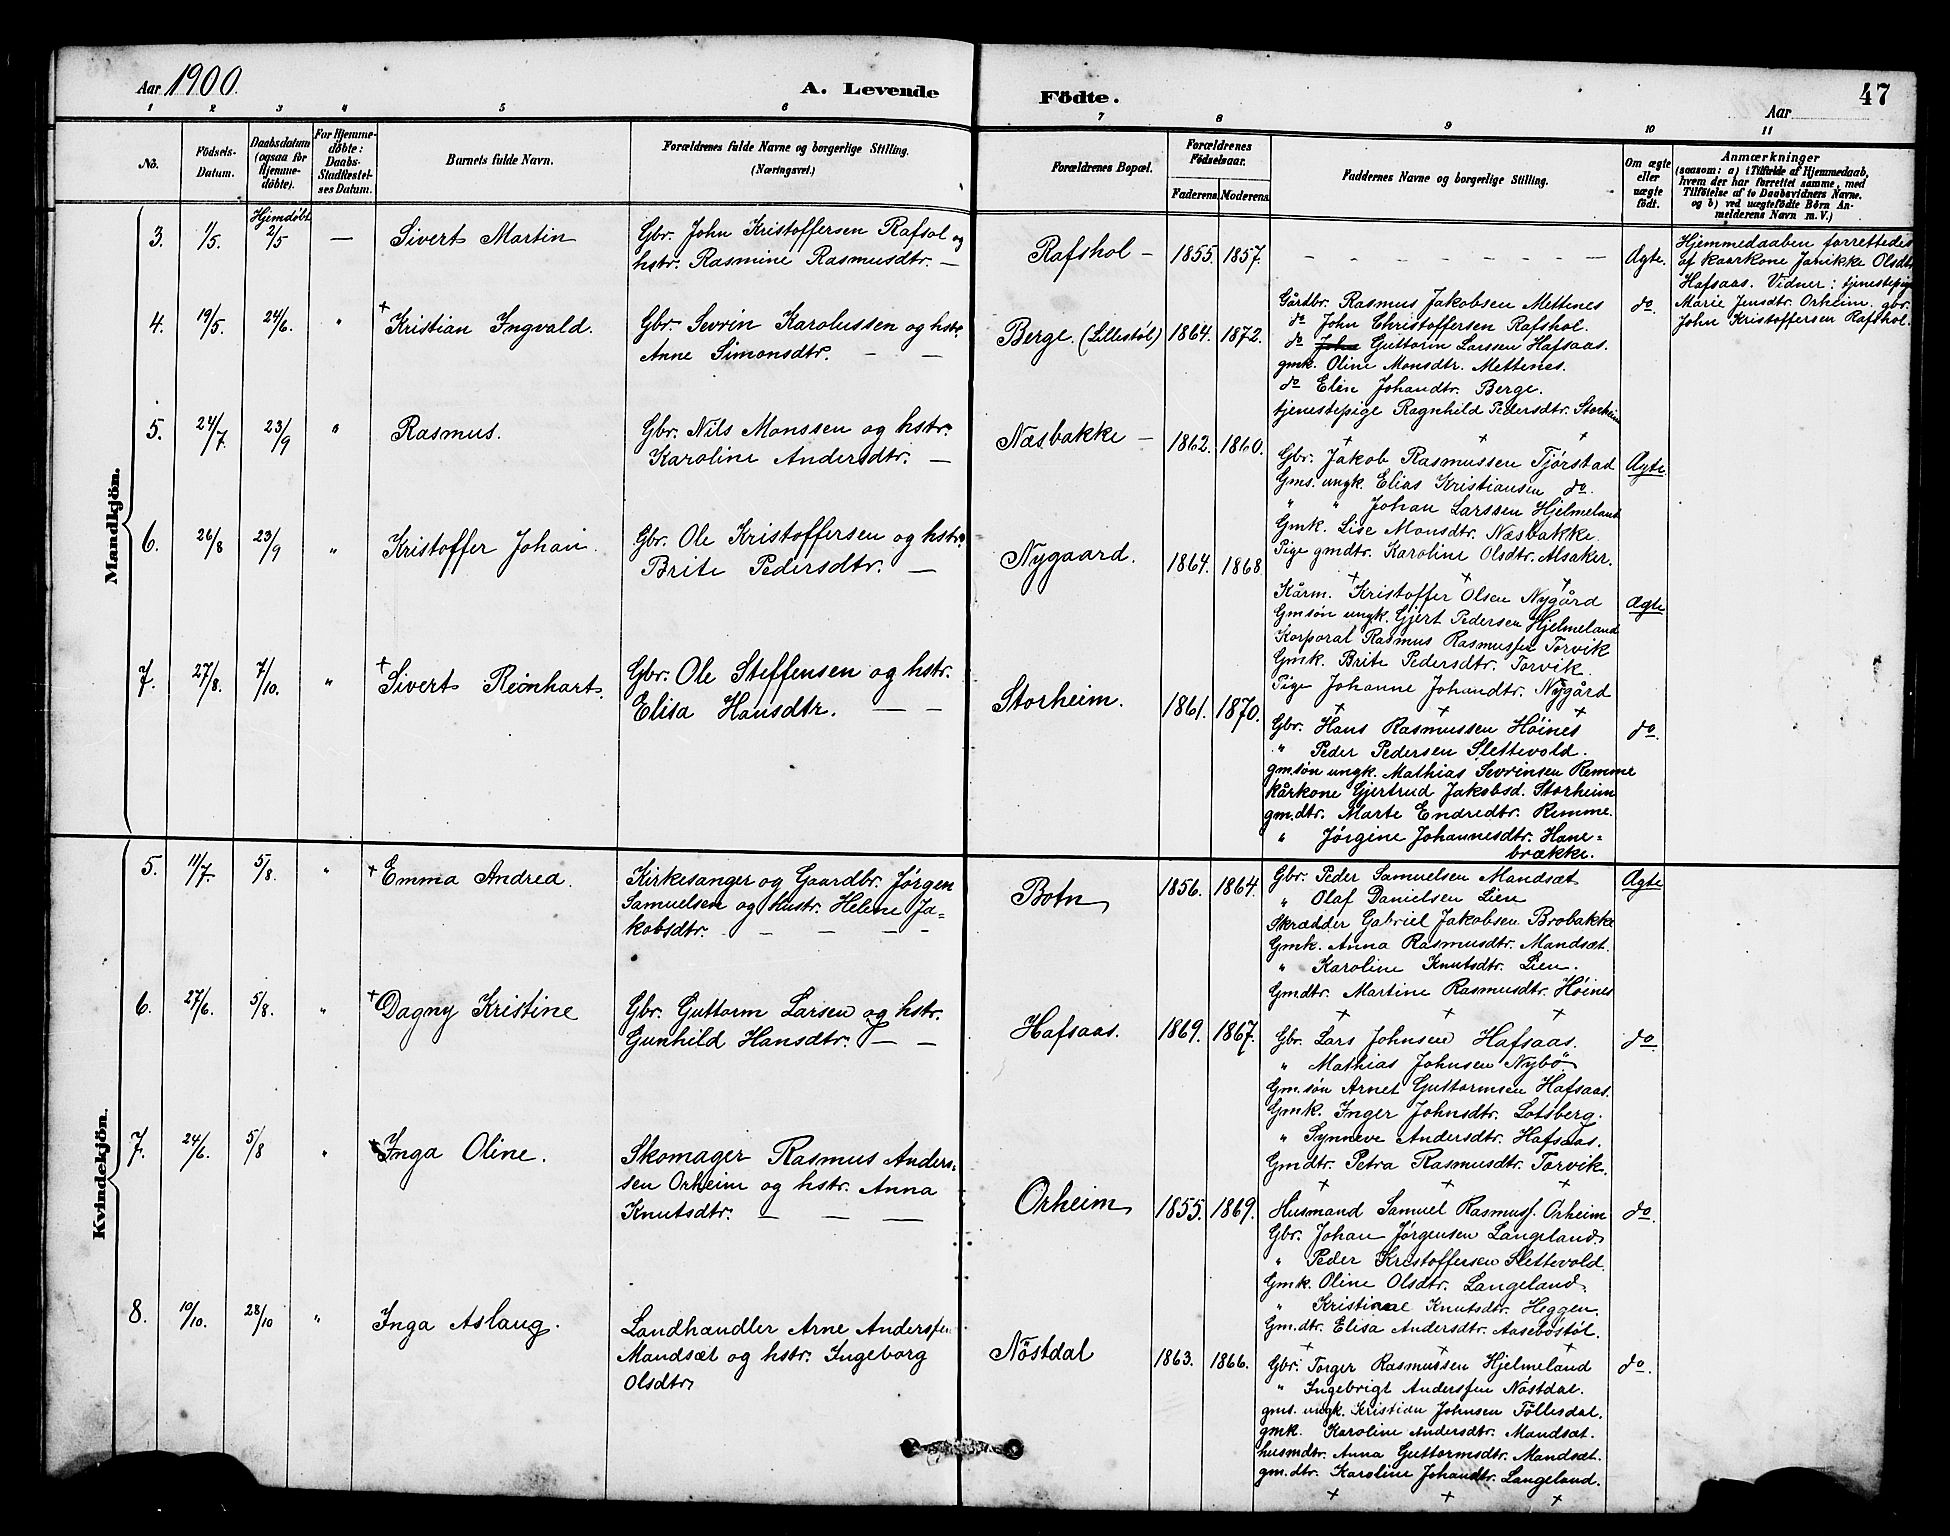 Aar 1900.
A. Levende Födte.
Aar
47
1 2 3 4 5 6 7 8 9 10 11
No.
Födsels-
Datum.
Daabsdatum
(ogsaa for
Hjemme-
døbte).
For Hjemme-
døbte:
Daabs-
Stadfæstel-
ses Datum.
Barnets fulde Navn.
Forældrenes fulde Navne og borgerlige Stilling.
(Næringsvei.)
Forældrenes Bopæl.
Forældrenes
Födselsaar.
Faderens Moderens
Faddernes Navne og borgerlige Stilling.
Om ægte
eller
uægte
födt.
Anmærkninger
(saasom: a) i Tilfælde af Hjemmedaab,
hvem der har forrettet samme, med
Tilføielse af to Daabsvidners Navne,
og b) ved uægtefødte Børn An-
melderens Navn m. V.)
Mandkjön.
3. 1/5. Hjemdøbt 2/5 — Sivert Martin
Gbr. John Kristoffersen Rafsol og
hstr. Rasmine Rasmusdtr. —
Rafshol — 1855. 1857. — — — — — — — Ægte.
Hjemmedaaben forrettedes
af kaarkone Janikke Olsdtr
Hafsaas. Vidner: tjenestepige
Marie Jensdtr. Orheim, gbr.
John Kristoffersen Rafshol.
4. 19/5. 24/6. " + Kristian Ingvald.
Gbr. Sevrin Karolussen og hstr.
Anne Simonsdtr. — —
Berge. (Lillestøl) 1864. 1872.
Gårdbr. Rasmus Jakobsen Mettenes
do John Christoffersen Rafshol.
do John Guttorm Larssen Hafsaas.
gmk. Oline Monsdtr. Mettenes.
do Elen Johandtr. Berge.
tjenestepige Ragnhild Pedersdtr. Storheim
+ + +
do.
5. 24/7 23/9 " Rasmus.
Gbr. Nils Monssen og hstr.
Karoline Andersdtr. —
Næsbakke — 1862. 1860.
Gbr. Jakob Rasmussen Tjørstad
Gms. ungk. Elias Kristiansen do.
" " Johan Larssen Hjelmeland
Gmk. Lise Monsdtr. Næsbakke.
Pige gmdtr. Karoline Olsdtr. Alsaker.
+ + +
Ægte
6. 26/8 23/9 " Kristoffer Johan.
Gbr. Ole Kristoffersen og hstr.
Brite Pedersdtr. —
Nygaard. 1864. 1868
Kårm. Kristoffer Olsen Nygård
Gmsøn ungk. Gjert Pedersen Hjelmeland
Korporal Rasmus Rasmussen Torvik
Gmk. Brite Pedersdtr. Torvik.
Pige Johanne Johandtr. Nygård
+ + +
Ægte
7. 27/8. 7/10. " + Sivert Reinhart.
Gbr. Ole Steffensen og hstr.
Elisa Hansdtr. — —
Storheim. 1861. 1870.
Gbr. Hans Rasmussen Höines
" Peder Pedersen Slettevold.
gm.søn ungk. Mathias Sevrinsen Remme
kårkone Gjertrud Jakobsd. Storheim
gm.dtr. Marte Endredtr. Remme.
" Jørgine Johannesdtr. Hane-
brække.
do.
Kvindekjön.
5. 11/7. 5/8. " + Emma Andrea.
Kirkesanger og Gaardbr. Jørgen
Samuelsen og hustr. Helene Ja-
kobsdtr. — — — —
Botn 1856. 1864.
Gbr. Peder Samuelsen Mandsæt
" Olaf Danielsen Lien
Skrædder Gabriel Jakobsen Brobakke
Gmk. Anna Rasmusdtr. Mandsæt.
" Karoline Knutsdtr. Lien.
Gmdtr. Martine Rasmusdtr. Höines
+ + +
Ægte
6. 27/6. 5/8. " + Dagny Kristine
Gbr. Guttorm Larsen og hstr.
Gunhild Hansdtr. — —
Hafsaas. 1869. 1867.
Gbr. Lars Johnsen Hafsaas.
" Mathias Johnsen Nybö
Gm.søn Arnet Guttormsen Hafsaas.
Gmk. Inger Johnsdtr. Lotsberg.
" Synneve Andersdtr. Hafsaas.
Gmdtr. Petra Rasmusdtr. Torvik.
+ + +
do.
7. 24/6. 5/8 " Inga Oline.
Skomager Rasmus Anders-
sen Orheim og hstr. Anna
Knutsdtr. — — —
Orheim 1855. 1869.
Husmand Samuel Rasmuss. Orheim
Gbr. Johan Jørgensen Langeland
" Peder Kristoffersen Slettevold.
Gmk. Oline Olsdtr. Langeland
" Kristine Knutsdtr. Heggen.
Gm.dtr. Elisa Andersdtr. Aasebøstöl.
+ + +
do.
8. 10/10. 28/10 " Inga Aslaug.
Landhandler Arne Anderssen
Mandsæt og hstr. Ingeborg
Olsdtr
Nöstdal 1863. 1866.
Gbr. Torger Rasmussen Hjelmeland
" Ingebrigt Anderssen Nöstdal.
gms. ungk. Kristian Johnsen Föllesdal.
gmk. Karoline Andersdtr. Mandsæt.
husmdtr. Anna Guttormsdtr. Mandsæt.
gm.dtr. Karoline Johandtr. Langeland.
+ + +
do.